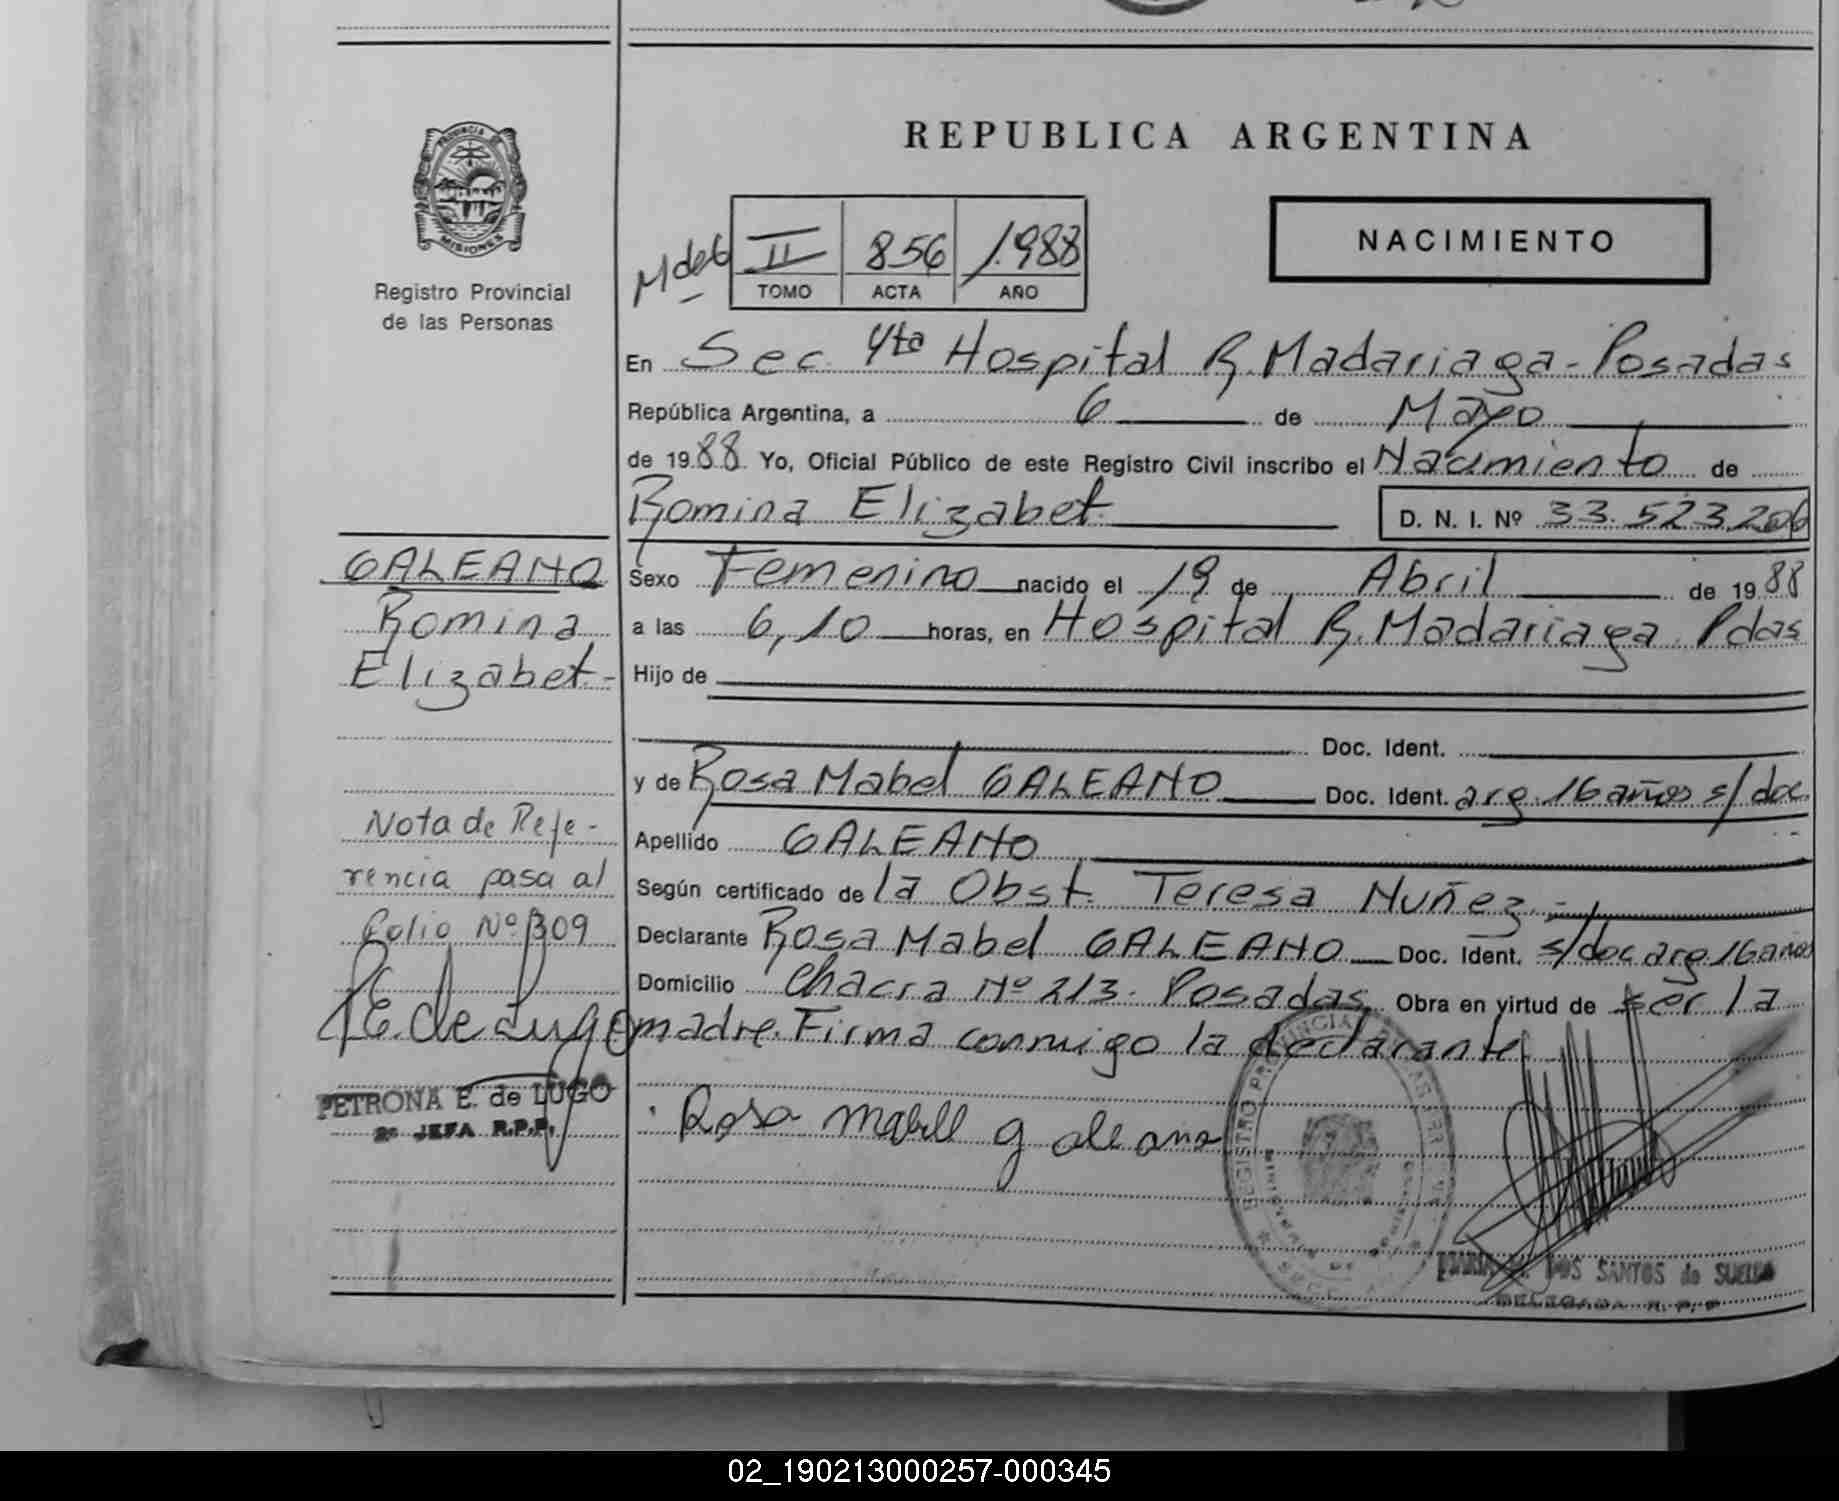 REPUBLICA ARGENTINA
PROVINCIA DE
MISIONES
Registro Provincial
de las Personas
NACIMIENTO
M deb
II 856 1.988
TOMO ACTA AÑO
En Sec. 4ta Hospital R. Madariaga - Posadas
República Argentina, a 6 de Mayo
de 1988 Yo, Oficial Público de este Registro Civil inscribo el Nacimiento de
Romina Elizabet D. N. I. Nº 33.523.206
GALEANO
Romina
Elizabet -
Sexo Femenino nacido el 19 de Abril de 1988
a las 6,10 horas, en Hospital R. Madariaga. Pdas
Hijo de
Doc. Ident.
y de Rosa Mabel GALEANO Doc. Ident. arg. 16 años s/doc.
Apellido GALEANO
Según certificado de la Obst. Teresa Nuñez.-
Declarante Rosa Mabel GALEANO Doc. Ident. s/doc arg 16 años
Domicilio Chacra Nº 213. Posadas Obra en virtud de ser la
madre. Firma conmigo la declarante.
Nota de Refe-
rencia pasa al
folio Nº 309
P.E. de Lugo
PETRONA E. de LUGO
2º JEFA R.P.P.
Rosa mabell galeano
REGISTRO PROVINCIAL DE LAS PERSONAS
DOS SANTOS de SUELDO
DELEGADA R. P. P.
02_190213000257-000345